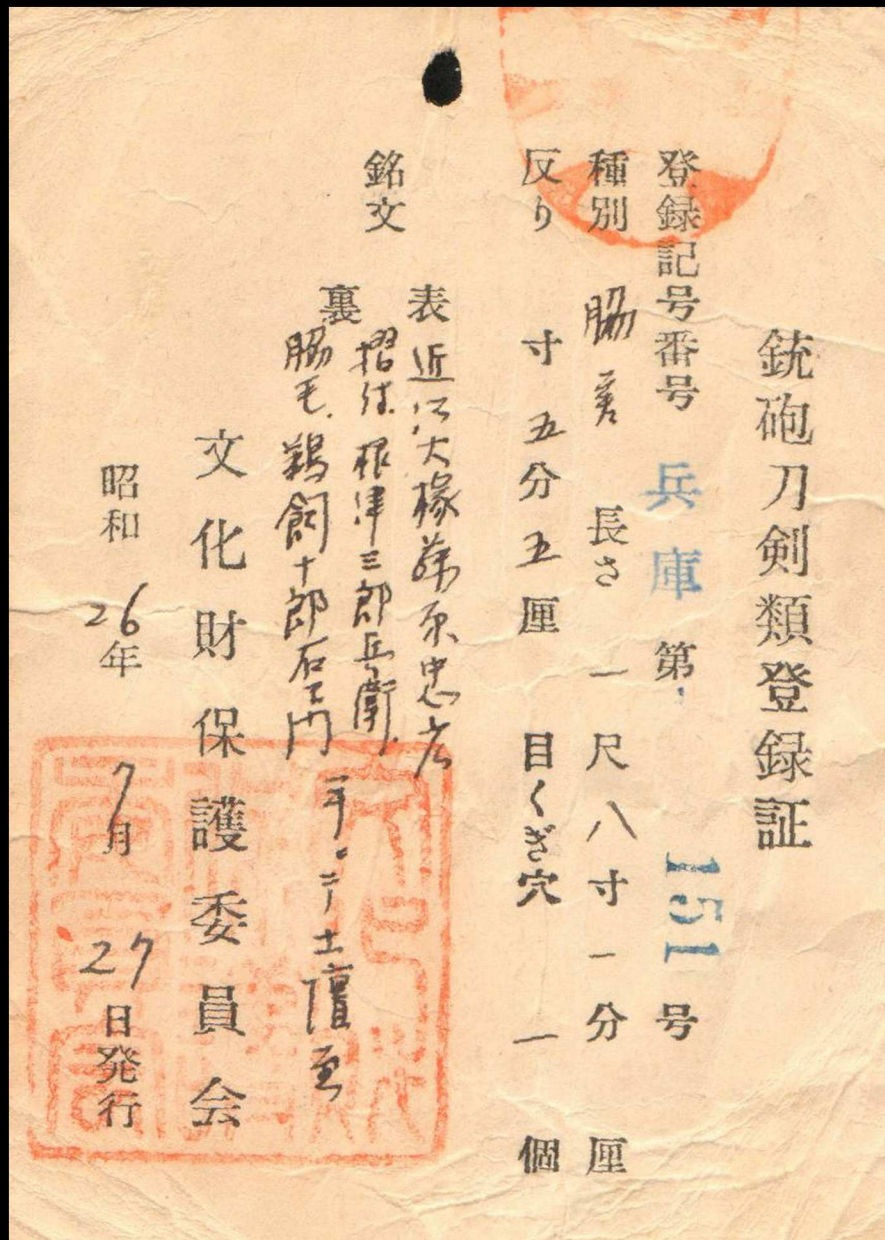 銃砲刀剣類登録証
登録記号番号 兵庫 第 151 号
種別 脇差 長さ 一尺八寸一分 厘
反り 寸五分五厘 目くぎ穴 一 個
銘文
表 近江大掾藤原忠広
裏 摺付 根津三郎兵衛
脇毛 鵜飼十郎右エ門 土壇
文化財保護委員会
昭和26年7月27日発行